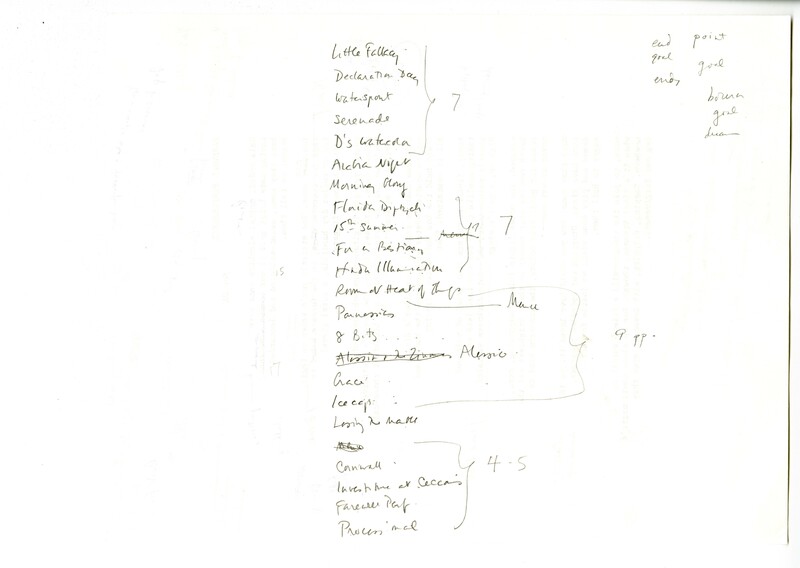 Little Fallacy
Declaration Day
Waterspout
7
Serenade
D's Watercolor
Arabia Night
Morning Glory
Florida Diptych
15th Summer
7
For a Bestiary
Hindu Illumination
Room at Heart of Things
Parnassians
8 Bits
9 pp.
Alessio
Graci
Icecap
Losing the Marbles
Cornwall
4-5
Investiture at Cecconi's
Farewell Perf
Processional
end point
goal goal
ends
bourn
goal